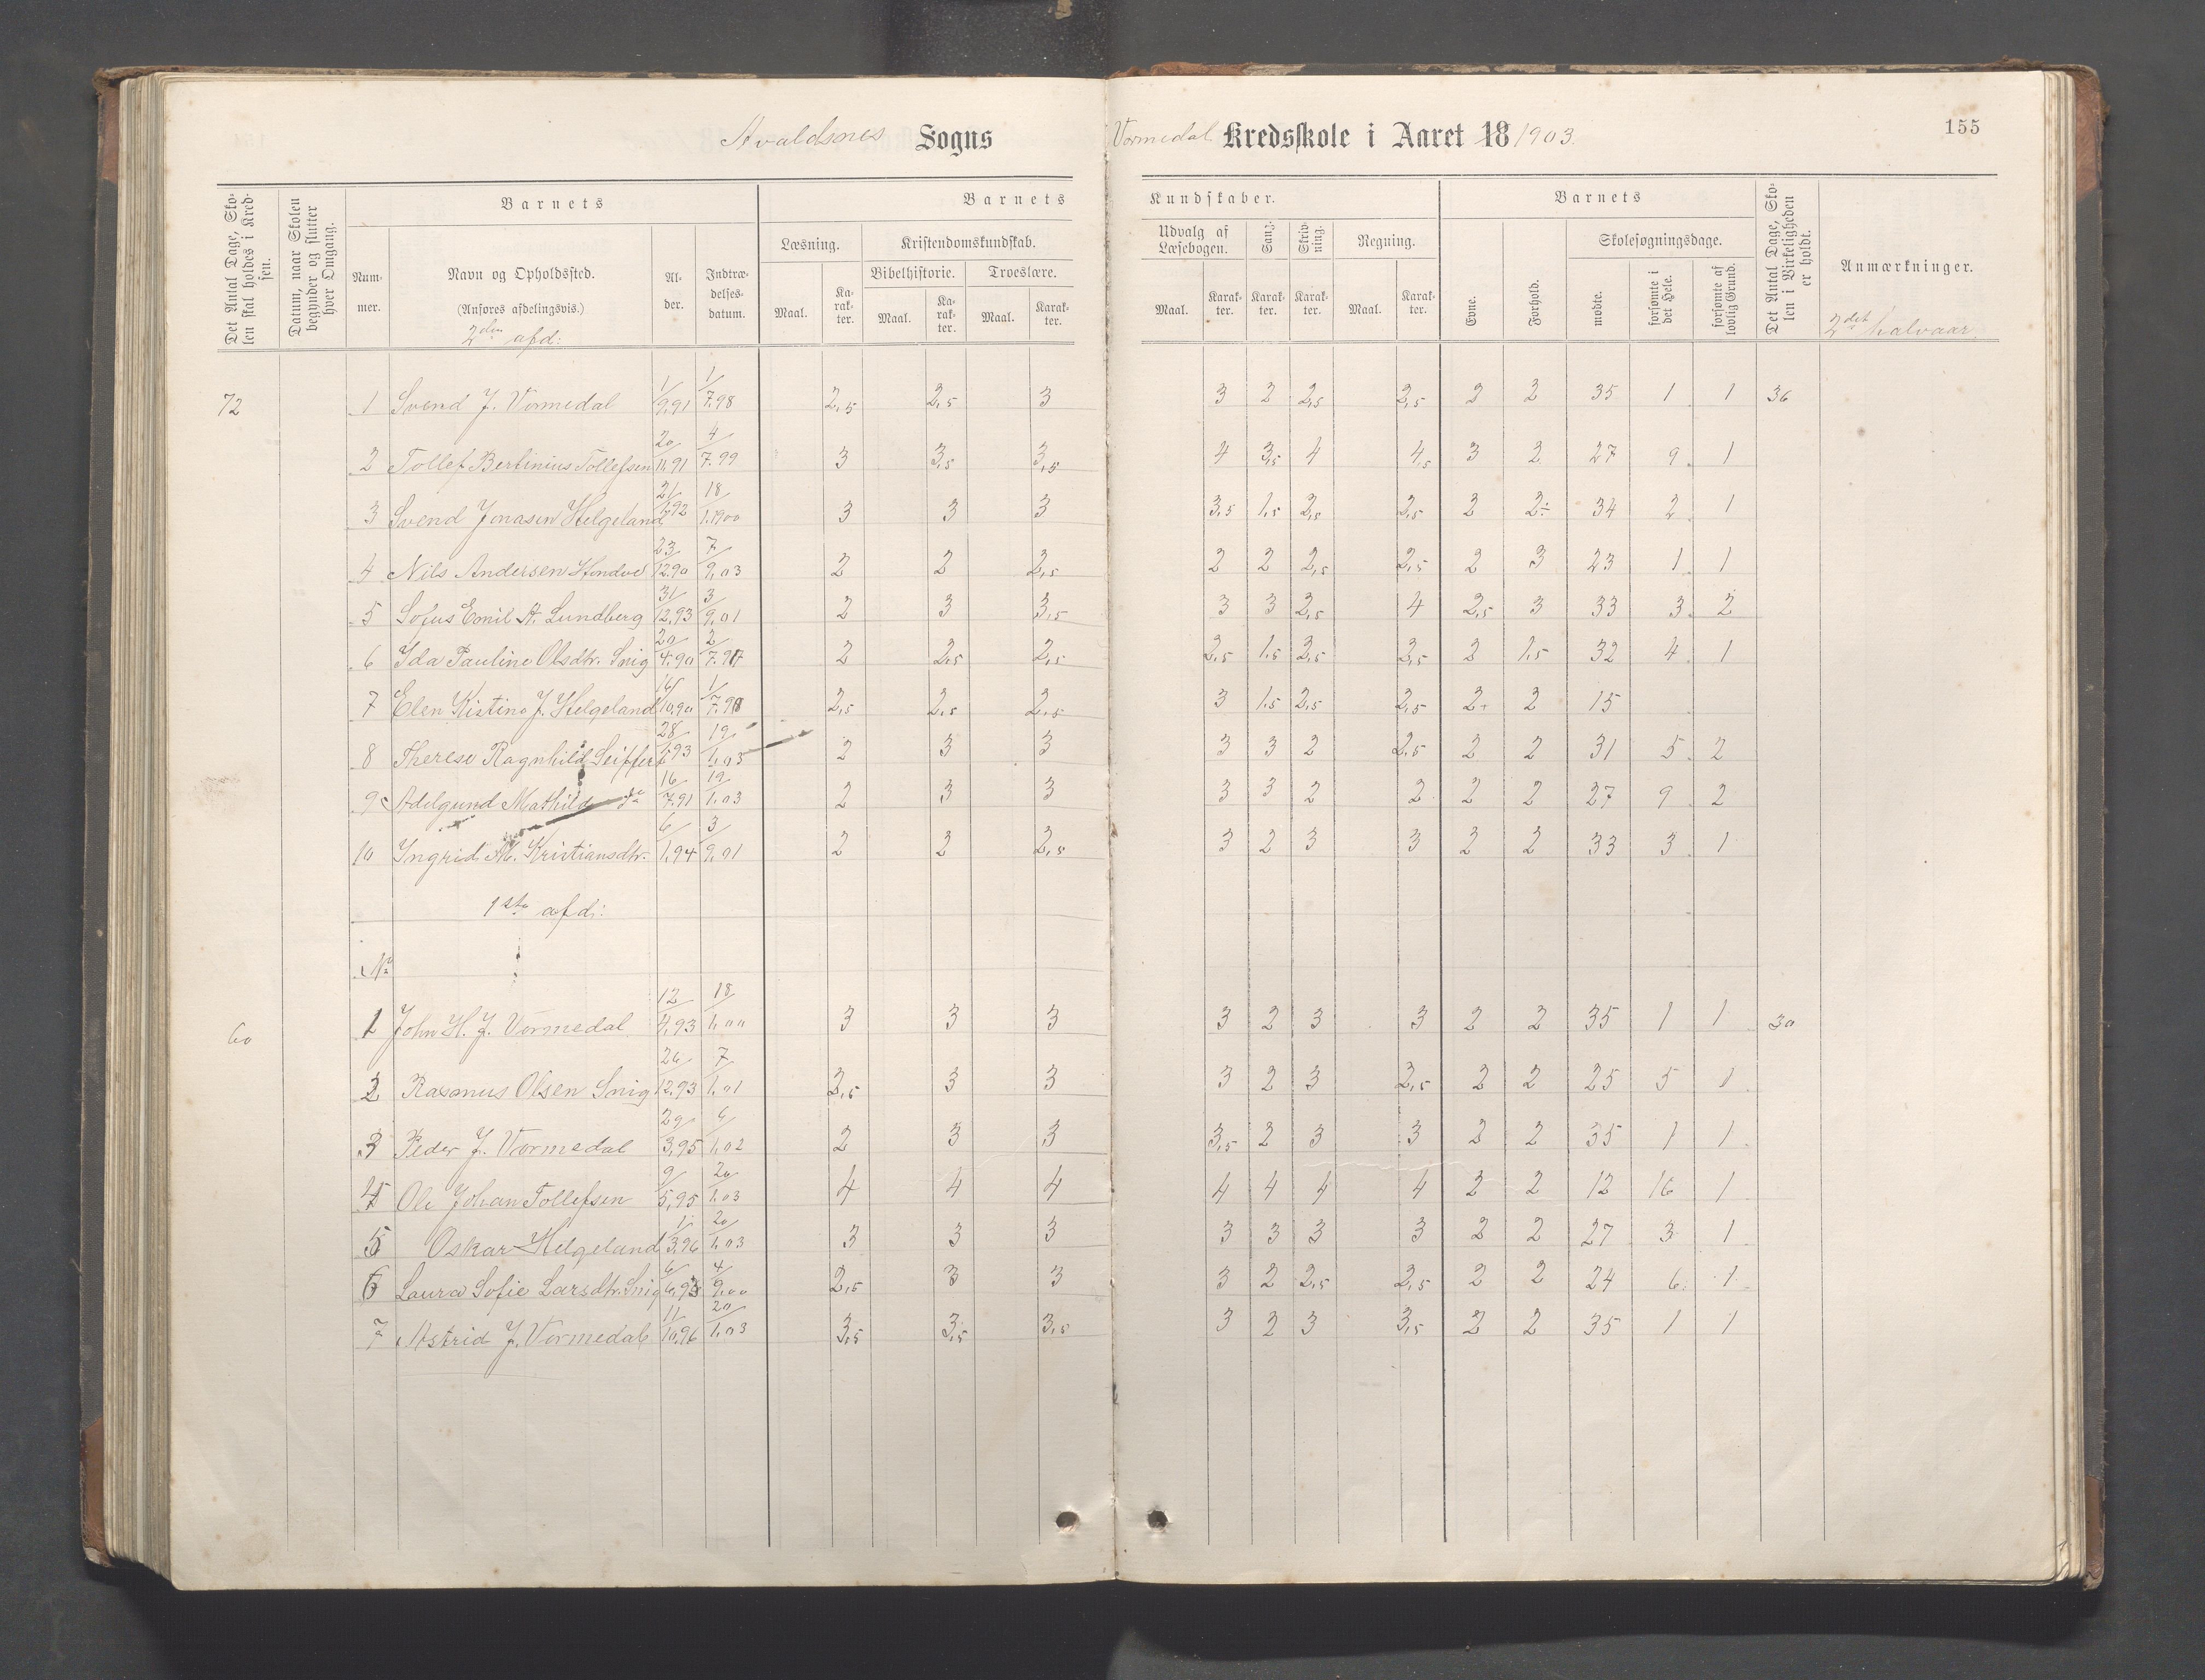 Avaldsnes Sogns Vormedal Kredsskole i Aaret 18/1903. 155
Det Antal Dage, Skolen skal holdes i Kredsen.
Datum, naar Skolen begynder og slutter hver Omgang.
Barnets
Barnets Kundskaber.
Barnets
Det Antal Dage, Skolen i Virkeligheden er holdt.
Anmærkninger.
Nummer.
Navn og Opholdssted.
(Anføres afdelingsvis.)
Alder.
Indtrædelsesdatum.
Læsning.
Kristendomskundskab.
Bibelhistorie.
Troeslære.
Udvalg af Læsebogen.
Sang.
Skrivning.
Regning.
Evne.
Forhold.
Skolesøgningsdage.
Maal. Karakter. Maal. Karakter. Maal. Karakter. Maal. Karakter. Karakter. Karakter. Maal. Karakter.
mødte.
forsømte i det Hele.
forsømte af lovlig Grund.
2den afd:
2det halvaar.
72 1 Svend J. Vormedal 1/9,91 1/7.98 2,5 2,5 3 3 2 2,5 2,5 2 2 35 1 1 36
2 Tollef Bertinius Tollefsen 20/11,91 4/7.99 3 3,5 3,5 4 3,5 4 4,5 3 2 27 9 1
3 Svend Jonasen Helgeland 21/1,92 18/1.1900 3 3 3 3,5 1,5 2,5 2,5 2 2÷ 34 2 1
4 Nils Andersen 23/12.90 7/9,03 2 2 2,5 2 2 2,5 2,5 2 3 23 1 1
5 Sofus Emil A. Lundberg 31/12,93 3/9,01 2 3 3,5 3 3 2,5 4 2,5 3 33 3 2
6 Ida Pauline Olsdtr. Snig 20/4.90 2/7.97 2 2,5 2,5 2,5 1,5 2,5 2,5 2 1,5 32 4 1
7 Elen Kistine J. Helgeland 16/10,90 1/7.98 2,5 2,5 2,5 3 1,5 2,5 2,5 2+ 2 15
8 Therese Ragnhild Seiffert 28/1,93 19/1,03 2 3 3 3 3 2 2,5 2 2 31 5 2
9 Adelgund Mathilde do 16/7.91 19/1.03 2 3 3 3 3 2 2 2 2 27 9 2
10 Ingrid M. Kristiansdtr. 6/1,94 3/9,01 2 2 2,5 3 2 3 3 2 2 33 3 1
1ste afd:
No
60 1 John H. J. Vormedal 12/4,93 18/1,00 3 3 3 3 2 3 3 2 2 35 1 1 30
2 Rasmus Olsen Snig 26/12,93 7/1,01 2,5 3 3 3 2 3 2,5 2 2 25 5 1
3 Peder J. Vormedal 29/3,95 6/1,02 2 3 3 3,5 2 3 3 2 2 35 1 1
4 Ole Johan Tollefsen 9/5,95 20/1.03 4 4 4 4 4 4 4 2 2 12 16 1
5 Oskar Helgeland 1/3,96 20/1.03 3 3 3 3 3 3 3 2 2 27 3 1
6 Laura Sofie Larsdtr. Snig 6/6,93 4/9,00 2,5 3 3 3 2 2,5 2,5 2 2 24 6 1
7 Astrid J. Vormedal 11/10,96 20/1,03 3,5 3,5 3,5 3 2 3 3,5 2 2 35 1 1